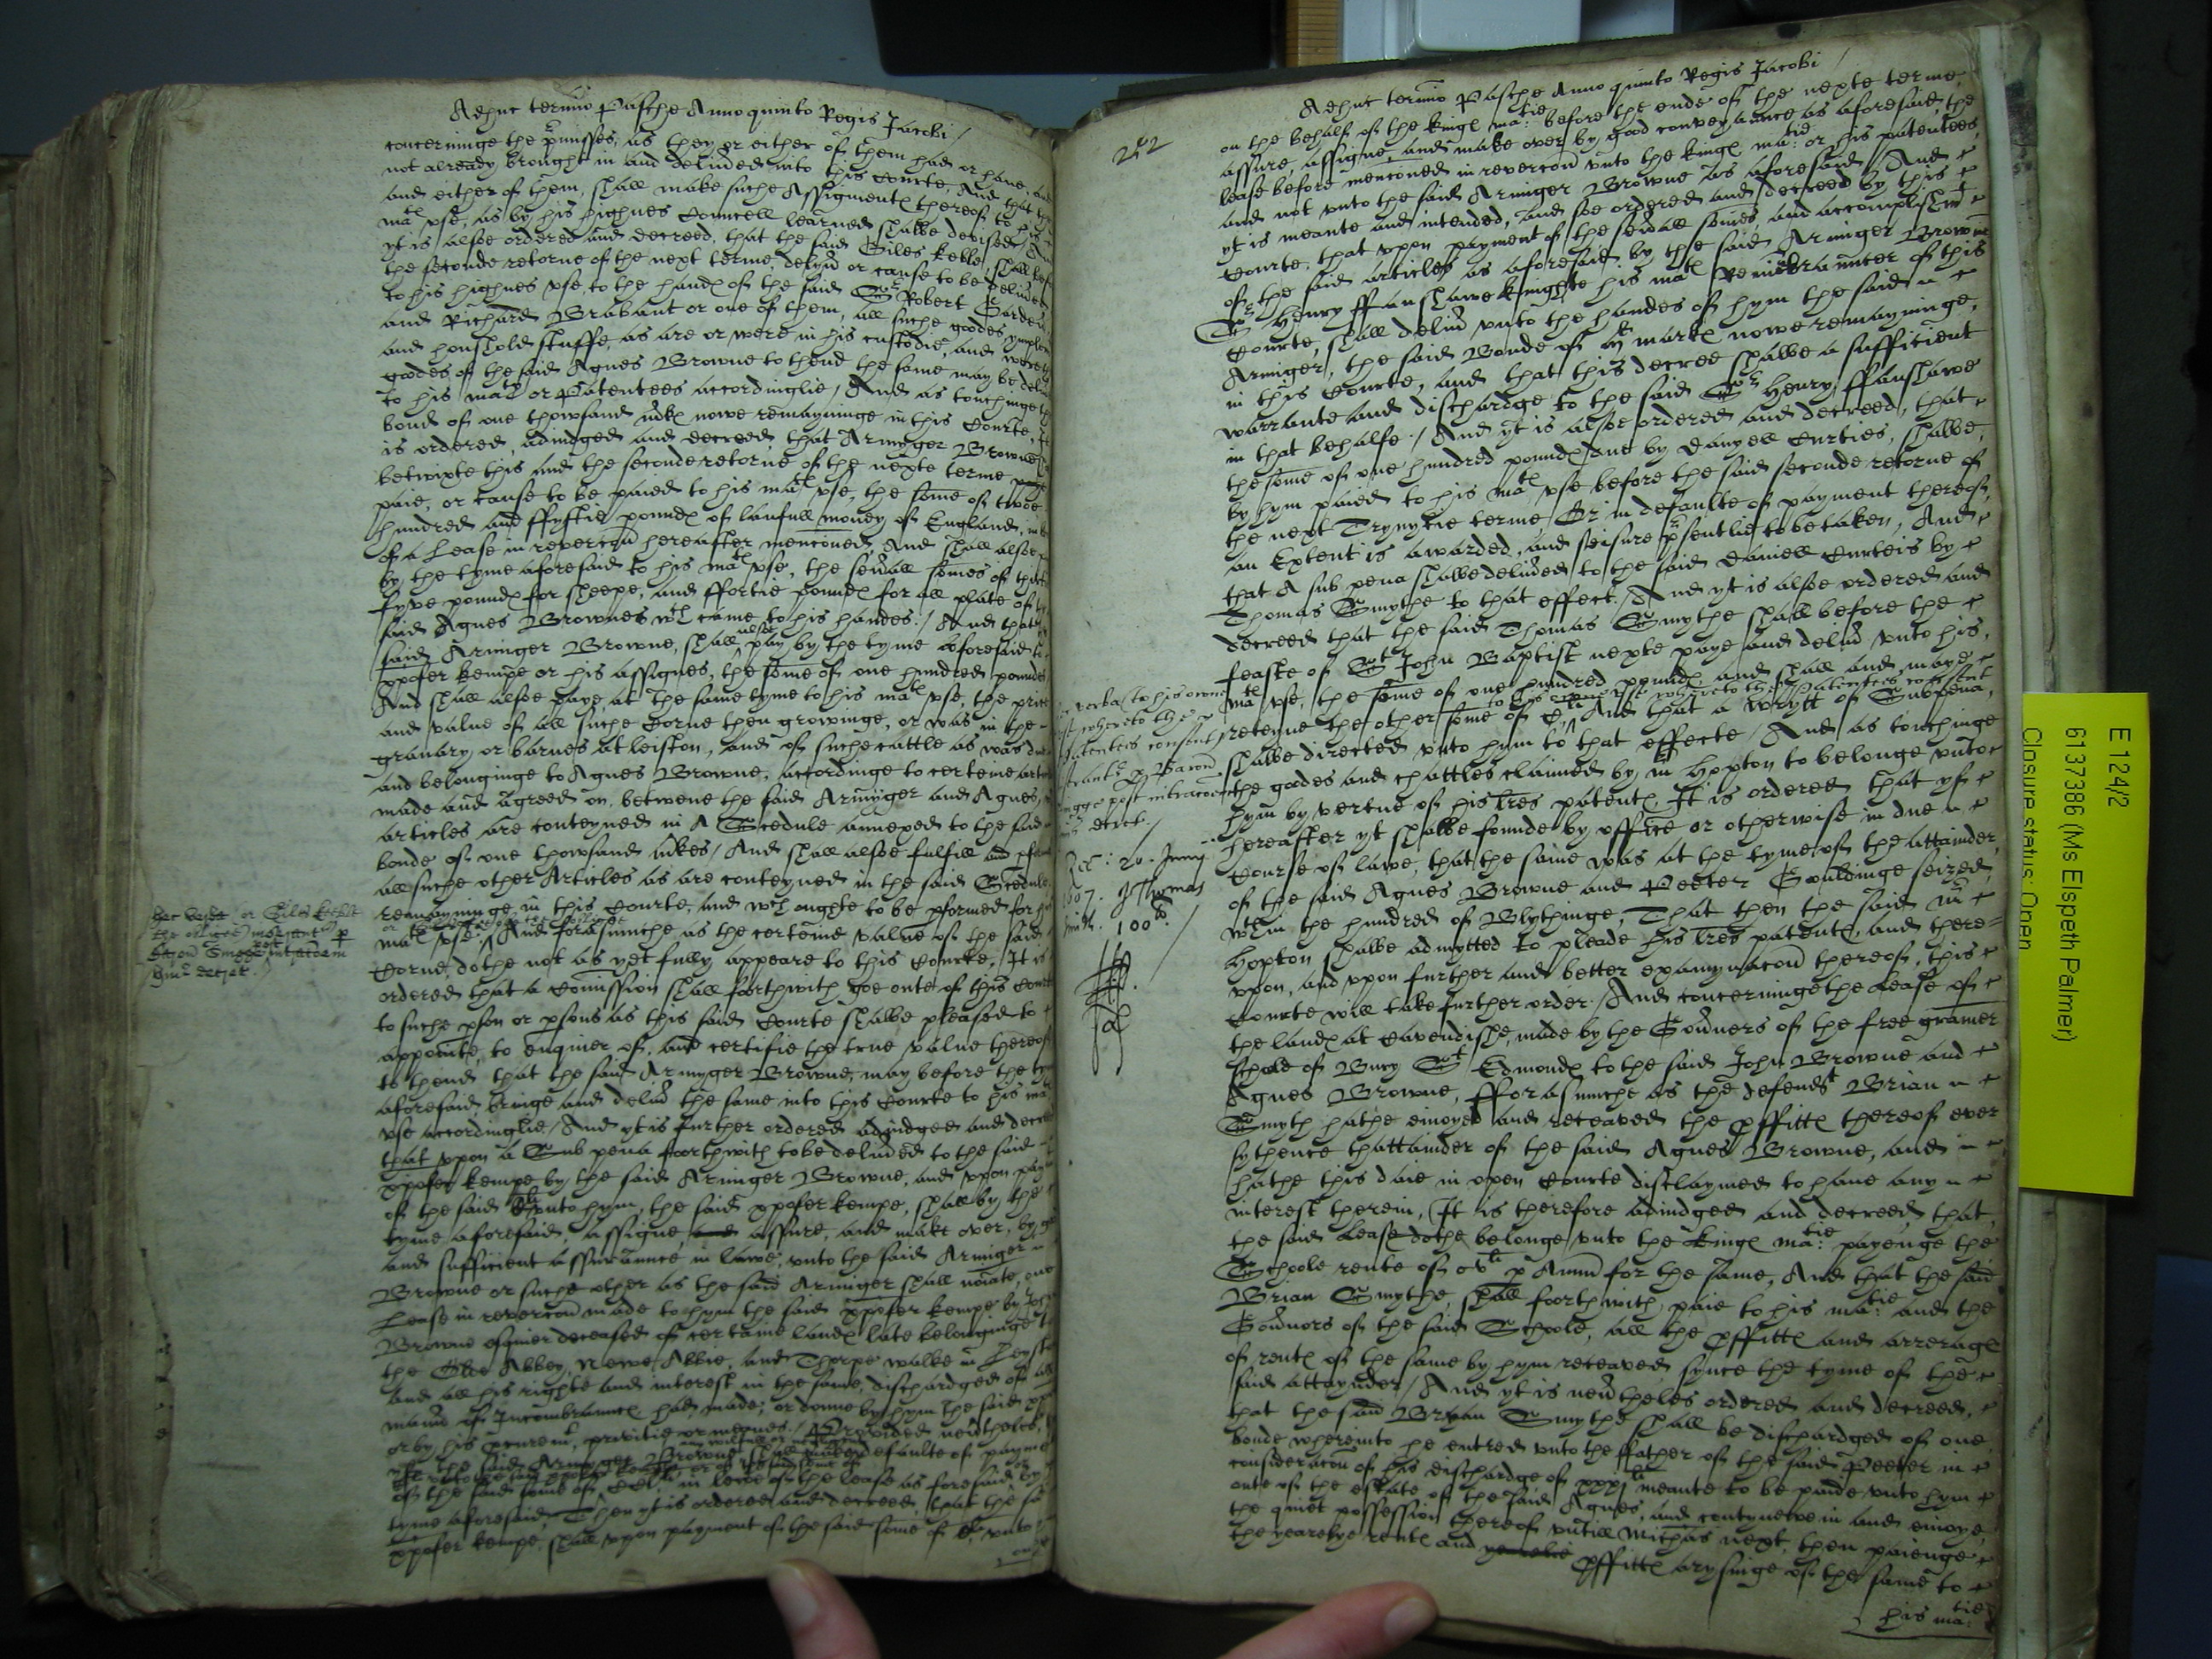 Adhuc termino Pasche Anno quinto Regis Jacobi /
concerninge the pmisses, as they or either of them had or have, and
not already brought in and delivded into this Courte, And that they
and either of them, shall make suche Assignmentes thereof to his
matꝭ vse, as by his highnes Councell learned shalbe devised, And
yt is alsoe ordered and decreed, that the said Giles Keble, shall before
the seconde retorne of the next terme, delivd or cause to be delivded
to his highnes vse, to the handꝭ of the said Sr Robert Gardener
and Richard Brabant or one of them, all suche goodes,
and houshold stuffe, as are or were in his custodie, and were the
goodes of the said Agnes Browne to thend the same may be
to his matie or Patentees accordinglie / And as touchinge the
bond of one thowsand mrkꝭ nowe remayninge in this Courte, It
is ordered, adiudged and decreed, that Armyger Browne
betwixte this and the seconde retorne of the nexte terme
paie, or cause to be paied to his matꝭ vse, the some of twoe
hundred and ffyftie poundꝭ of laufull money of England, in
of a Lease in revercon hereafter mencioned, And shall alsoe
by the tyme aforesaid to his matꝭ vse, the sevall somes of
fyve poundꝭ for sheepe, and ffortie poundꝭ for all plate of the
said Agnes Brownes wch came to his handes / And that the
said Armiger Browne, shall alsoe pay by the tyme aforesaid to
xpofer Kempe or his assignes, the some of one hundred poundes
And shall alsoe paye at the same tyme to his matꝭ vse, the price
and value of all suche Corne then growinge, or was in the
granary or barnes at leiston, and of suche cattle as was due
and belonginge to Agnes Browne, accordinge to certeine articles
made and agreed on betwene the said Armyger and Agnes,
articles are conteyned in A Scedule annexed to the said
bonde of one thowsand mkes / And shall alsoe fulfill and
all suche other Articles as are conteyned in the said Scedule
remayninge in this Courte, and wch ought to be pformed for his
matꝭ vse / And forasmuche as the certeine value of the said
Corne, dothe not as yet fully appeare to this Courte, It is
ordered that a Comission shall foorthwith goe oute of this Courte
to suche pson or psons as this said Courte shalbe pleased to
appointe, to enquier of, and certifie the true value thereof
to thend, that the said Armyger Browne, may before the tyme
aforesaid, bringe and delivd the same into this Courte to his matꝭ
vse accordinglie / And yt is further ordered adiudged and decreed
that vpon a Sub pena foorthwith to be delivded to the said
xpofer Kempe by the said Armiger Browne, and vpon
of the said Cli vnto hym, the said xpofer Kempe, shall by the
tyme aforesaid, assigne, and assure, and make over, by good
and sufficient assurance in lawe, vnto the said Armiger
Browne or suche other as the said Armiger shall noiate, one
Lease in revercon made to hym the said xpofer Kempe by John
Browne esquier deceased of certaine landꝭ late belonginge to
the Olde Abbey, Newe Abbie, and Thorpe walke in Leyston
and all his righte and interest in the same, dischardged of all
maner of Incombrancꝭ had, made, or donne by hym the said
or by his procuremt, privitie or meanes / Provided nevtheles,
yf the said Armyger Browne shall make defaulte of payment
of the said some of in lewe of the lease as foresaid by
tyme aforesaid, Then yt is ordered and decreed, that the said
xpofer Kempe, shall vpon payment of the said some of Cli vnto
on the

her verba or Giles Keeble

252
Adhuc termino Pasche Anno quinto Regis Jacobi /
on the behalf of the kingꝭ matie before the ende of the nexte terme
assure, assigne, and make over by good conveyaunce as aforesaid, the
lease before mencioned in revercon vnto the kingꝭ matie or his patentees,
and not vnto the said Armiger Browne as aforesaid / And
yt is meante and intended, and soe ordered and decreed by this
Courte, that vpon payment of the sevall somes, and accomplishmt
of the said articles as aforesaid by the said Armiger Browne
Sr Henry ffanshawe knighte his matꝭ Remembrauncer of this
Courte, shall delivd vnto the handes of hym the said
Armiger, the said Bonde of m markꝭ nowe remayninge,
in this Courte, and that this decree shalbe a sufficient
warrante and dischardge to the said Sr Henry ffanshawe
in that behalfe / And yt is alsoe ordered and decreed, that
the some of one hundred poundꝭ due by Danyell Curties, shalbe
by hym paied to his matꝭ vse before the said seconde retorne of
the next Trynytie terme, Or in defaulte of payment thereof,
an Extent is awarded, and seisure psentlie to be taken, And
that A sub pena shalbe delivded to the said Daniell Curteis by
Thomas Smythe to that effect / And yt is alsoe ordered and
decreed that the said Thomas Smythe shall before the
feaste of St John Baptist nexte paye and delivd vnto his
matꝭ vse, the some of one hundred poundꝭ, and shall and maye
to his owne vse whereto the Patentees consent
reteyne the other some of Cli And that a wrytt of Subpena,
shalbe directed vnto hym to that effecte / And as touchinge
the goodes and chattles claimed by mr Hopton to belonge vnto
hym by vertue of his lres patentꝭ, It is ordered that yf
hereafter yt shalbe founde by office or otherwise in due
Course of lawe, that the same was at the tyme of the attainder
of the said Agnes Browne and Peeter Gouldinge seized,
wthin the hundred of Blythinge, That then the said mr
Hopton shalbe admytted to pleade his lres patentꝭ, and there=
vpon, and vpon further and better examynacon thereof, this
Courte will take further order / And concerninge the Lease of
the landꝭ at Cavendishe, made by the Govners of the free gramer
schole of Bury St Edmondꝭ to the said John Browne and
Agnes Browne, fforasmuche as the defendt Brian
Smyth hathe enioyed and receaved the pffittꝭ thereof ever
sythence thattainder of the said Agnes Browne, and
hathe this daie in open Courte disclaymed to have any
interest therein, It is therefore adiudged and decreed that
the said Lease dothe belonge vnto the kingꝭ matie payenge the
Schoole rente of p Annu for the same, And that the said
Brian Smythe, shall foorthwith paie to his matie and the
Govnors of the said Schoole, all the pffittꝭ and arreragꝭ
of rentꝭ of the same by hym receaved synce the tyme of the
said attaynder / And yt is nevtheles ordered and decreed,
that the said Bryan Smythe shall be dischardged of one
bonde whereinto he entred vnto the ffather of the said Peeter in
consideracon of his dischardge of xxxli meante to be paide vnto hym
oute of the estate of the said Agnes, and contynewe in and enioye
the quiet possession thereof vntill Michas next, then paienge
the yearelye rentꝭ and yearelie pffittꝭ arysinge of the same to
his matie

verba (to his owne
vse whereto the
Patentees consent)
Rec: 20. Junij
1607. p Thomas
Smith. 100li /

E 124/2
6137386 (Ms Elspeth Palmer)
Closure status: Open